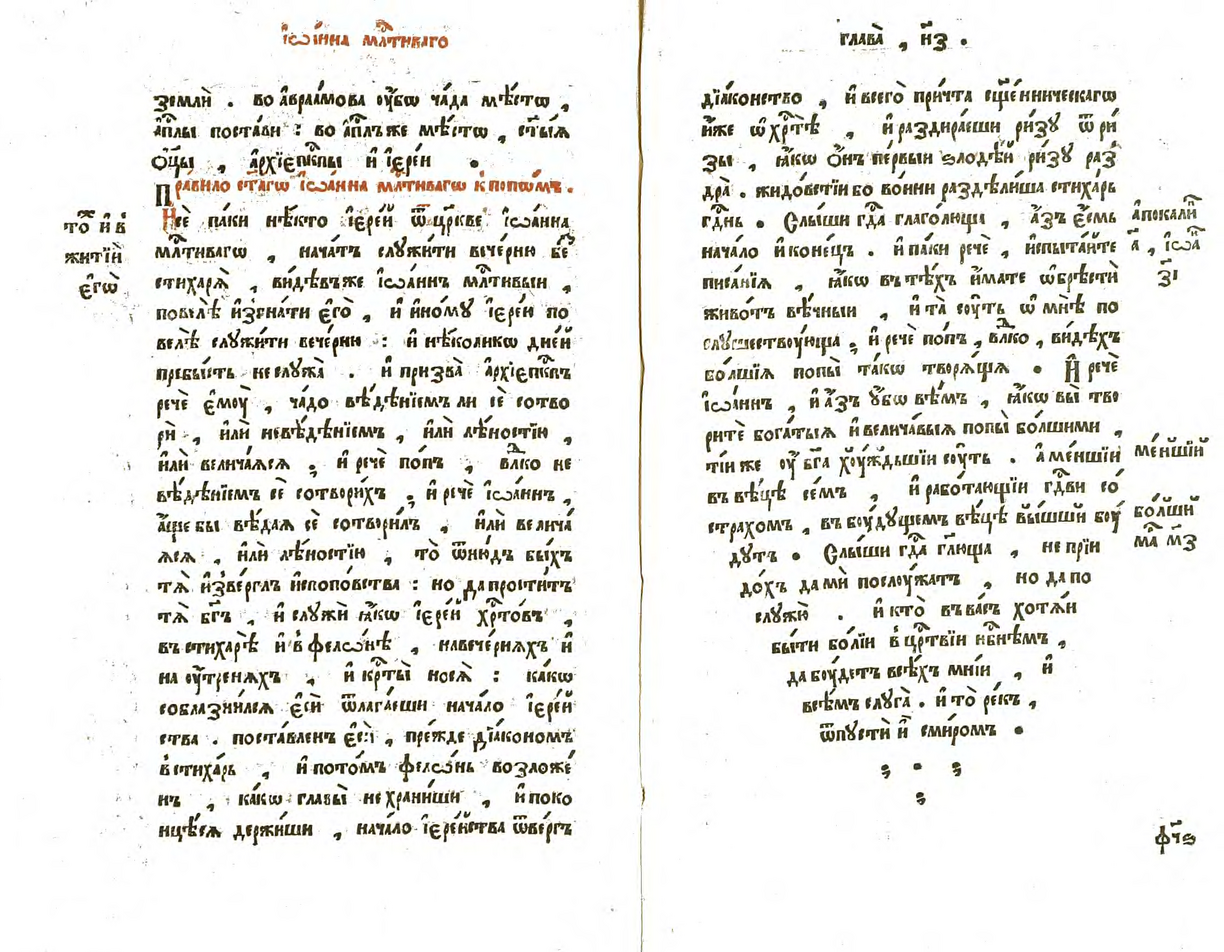 їѡа́нна мл҇тиваго
землѝ . во а҆враа́мова оу҆́бѡ ча́да мѣ́стѡ ,
а҆п҇лы поста́ви : во а҆п҇лъже мѣ́стѡ , ст҃ы́ѧ
ѻ҆ц҃ы̀ , а҆рхїєп҇кпы и҆ і҆єре́и .
Пра́вило ст҃а́гѡ і҆ѡа́нна мл҇тивагѡ к попѡ́мъ .
то́ и҆ в
житїѝ
є҆гѡ̀
Нсѐ па́ки нѣ́кто і҆єре́й ѿ цр҃кве і҆ѡа́нна
мл҇тивагѡ , нача́тъ служи́ти вече́рню бе
стихарѧ̀ , ви́дѣвъже і҆ѡа́ннъ мл҇тивыи ,
повелѣ̀ и҆згна́ти є҆го̀ , и҆ и҆но́му і҆єре́ю по
велѣ̀ служи́ти вече́рню : и҆ нѣ́коликѡ дне́й
пребы́сть не служа̀ . и҆ призва̀ а҆рхїєп҇кпъ
речѐ є҆моу̀ , ча́до вѣ́дѣнїемъ ли сѐ сотво
рѝ , и҆лѝ невѣ́дѣнїемъ , и҆лѝ лѣ́ностїю ,
и҆лѝ велича́ѧсѧ ; и҆ речѐ по́пъ , влⷣко не
вѣ́дѣнїемъ сѐ сотвори́хъ , и҆ речѐ і҆ѡа́ннъ ,
а҆́ще бы вѣ́даѧ сѐ сотвори́лъ , и҆лѝ велича́
ѧсѧ , и҆лѝ лѣ́ностїю , то̀ ѿню́дъ бы́хъ
тѧ̀ и҆зве́рглъ и҆споповства : но да прости́тъ
тѧ̀ бг҃ъ , и҆ служѝ ꙗ҆́кѡ і҆єре́й хр҇то́въ ,
въ стиха́рѣ и҆ в фелѡ́нѣ , на вече́рнѧхъ и҆
на оу҆́тренѧхъ , и҆ кр҇ты̀ носѧ̀ : ка́кѡ
соблазни́лсѧ є҆сѝ ѿлага́еши нача́ло і҆єре́й
ства . поста́вленъ є҆сѝ , пре́жде дїа́кономъ
в стиха́рь , и҆ пото́мъ фелѡ́нь возложе́
нъ , ка́кѡ главы̀ не храни́ши , и҆ поко
ицѣ́сѧ держи́ши , нача́ло і҆єре́йства ѿве́ргъ
глава̀ , н҃з .
дїа́конство , и҆ всего̀ при́чта сщ҃е́нническагѡ
и҆́же ѡ҆ хр҇тѣ̀ , и҆ раздира́еши ри́зу ѿ ри́
зы , ꙗ҆́кѡ ѻ҆́нъ пе́рвыи ѕлодѣ́й ри́зу раз̾
дра̀ . жидо́встїи бо во́ини раздѣли́ша стиха́рь
гд҇нь . Слы́ши гдⷭ҇а глаго́люща , а҆́зъ є҆́смь
нача́ло и҆ коне́цъ . и҆ па́ки речѐ , и҆спыта́йте
писа́нїѧ , ꙗ҆́кѡ въ тѣ́хъ и҆́мате ѡ҆брѣстѝ
живо́тъ вѣ́чныи , и҆ та̀ соу́ть ѡ҆ мнѣ̀ по
слу́шествоующа ; и҆ речѐ по́пъ , влⷣко , ви́дѣхъ
бо́лшїѧ попы̀ та́кѡ творѧ́щѧ . И҆ речѐ
і҆ѡа́ннъ , и҆ а҆́зъ оу҆́бѡ вѣ́мъ , ꙗ҆́кѡ вы̀ тво
ритѐ бога́тыѧ и҆ велича́выѧ попы̀ бо́лшими ,
тїи же оу҆ бг҃а хоу́ждьшїи соу́ть . а҆ ме́ншїи
въ вѣ́цѣ се́мъ , и҆ рабо́тающїи гд҇ви со́
стра́хомъ , въ боу́дущемъ вѣ́цѣ вы́шши боу́
дутъ . Слы́ши гдⷭ҇а гл҃юща , не прїи
до́хъ да мѝ послоу́жатъ , но да по
служю̀ . и҆ кто̀ въ ва́съ хотѧ́и
бы́ти бо́лїи в цр҇твїи нб҇нѣмъ ,
да боу́детъ всѣ́хъ мнїи , и҆
всѣ́мъ слуга̀ . и҆ то̀ ре́къ ,
ѿпустѝ и҆̀ с ми́ромъ .
а҆покали́
а҃ , і҆ѡа́
з҃і
ме́ншїй
бо́лшїй
мѳ҇а м҃з
ф҃чѕ